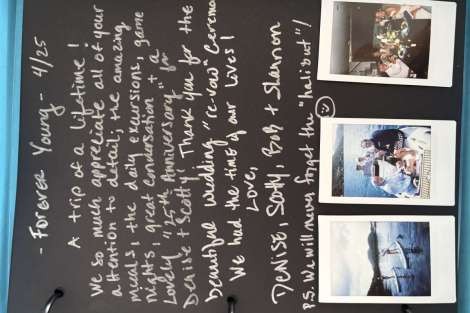 - Forever Young - 4/25
A trip of a lifetime!
We so much appreciate all of your
attention to detail; the amazing
meals, the daily excursions, game
nights, great conversation + a
Lovely "25th Anniversary" for
Denise + Scotty! Thank you for the
beautiful wedding "re-vow" Ceremo
We had the time of our lives!
Love,
Denise, Scotty, Bob + Shannon
P.S. We will never forget the "halibut"!